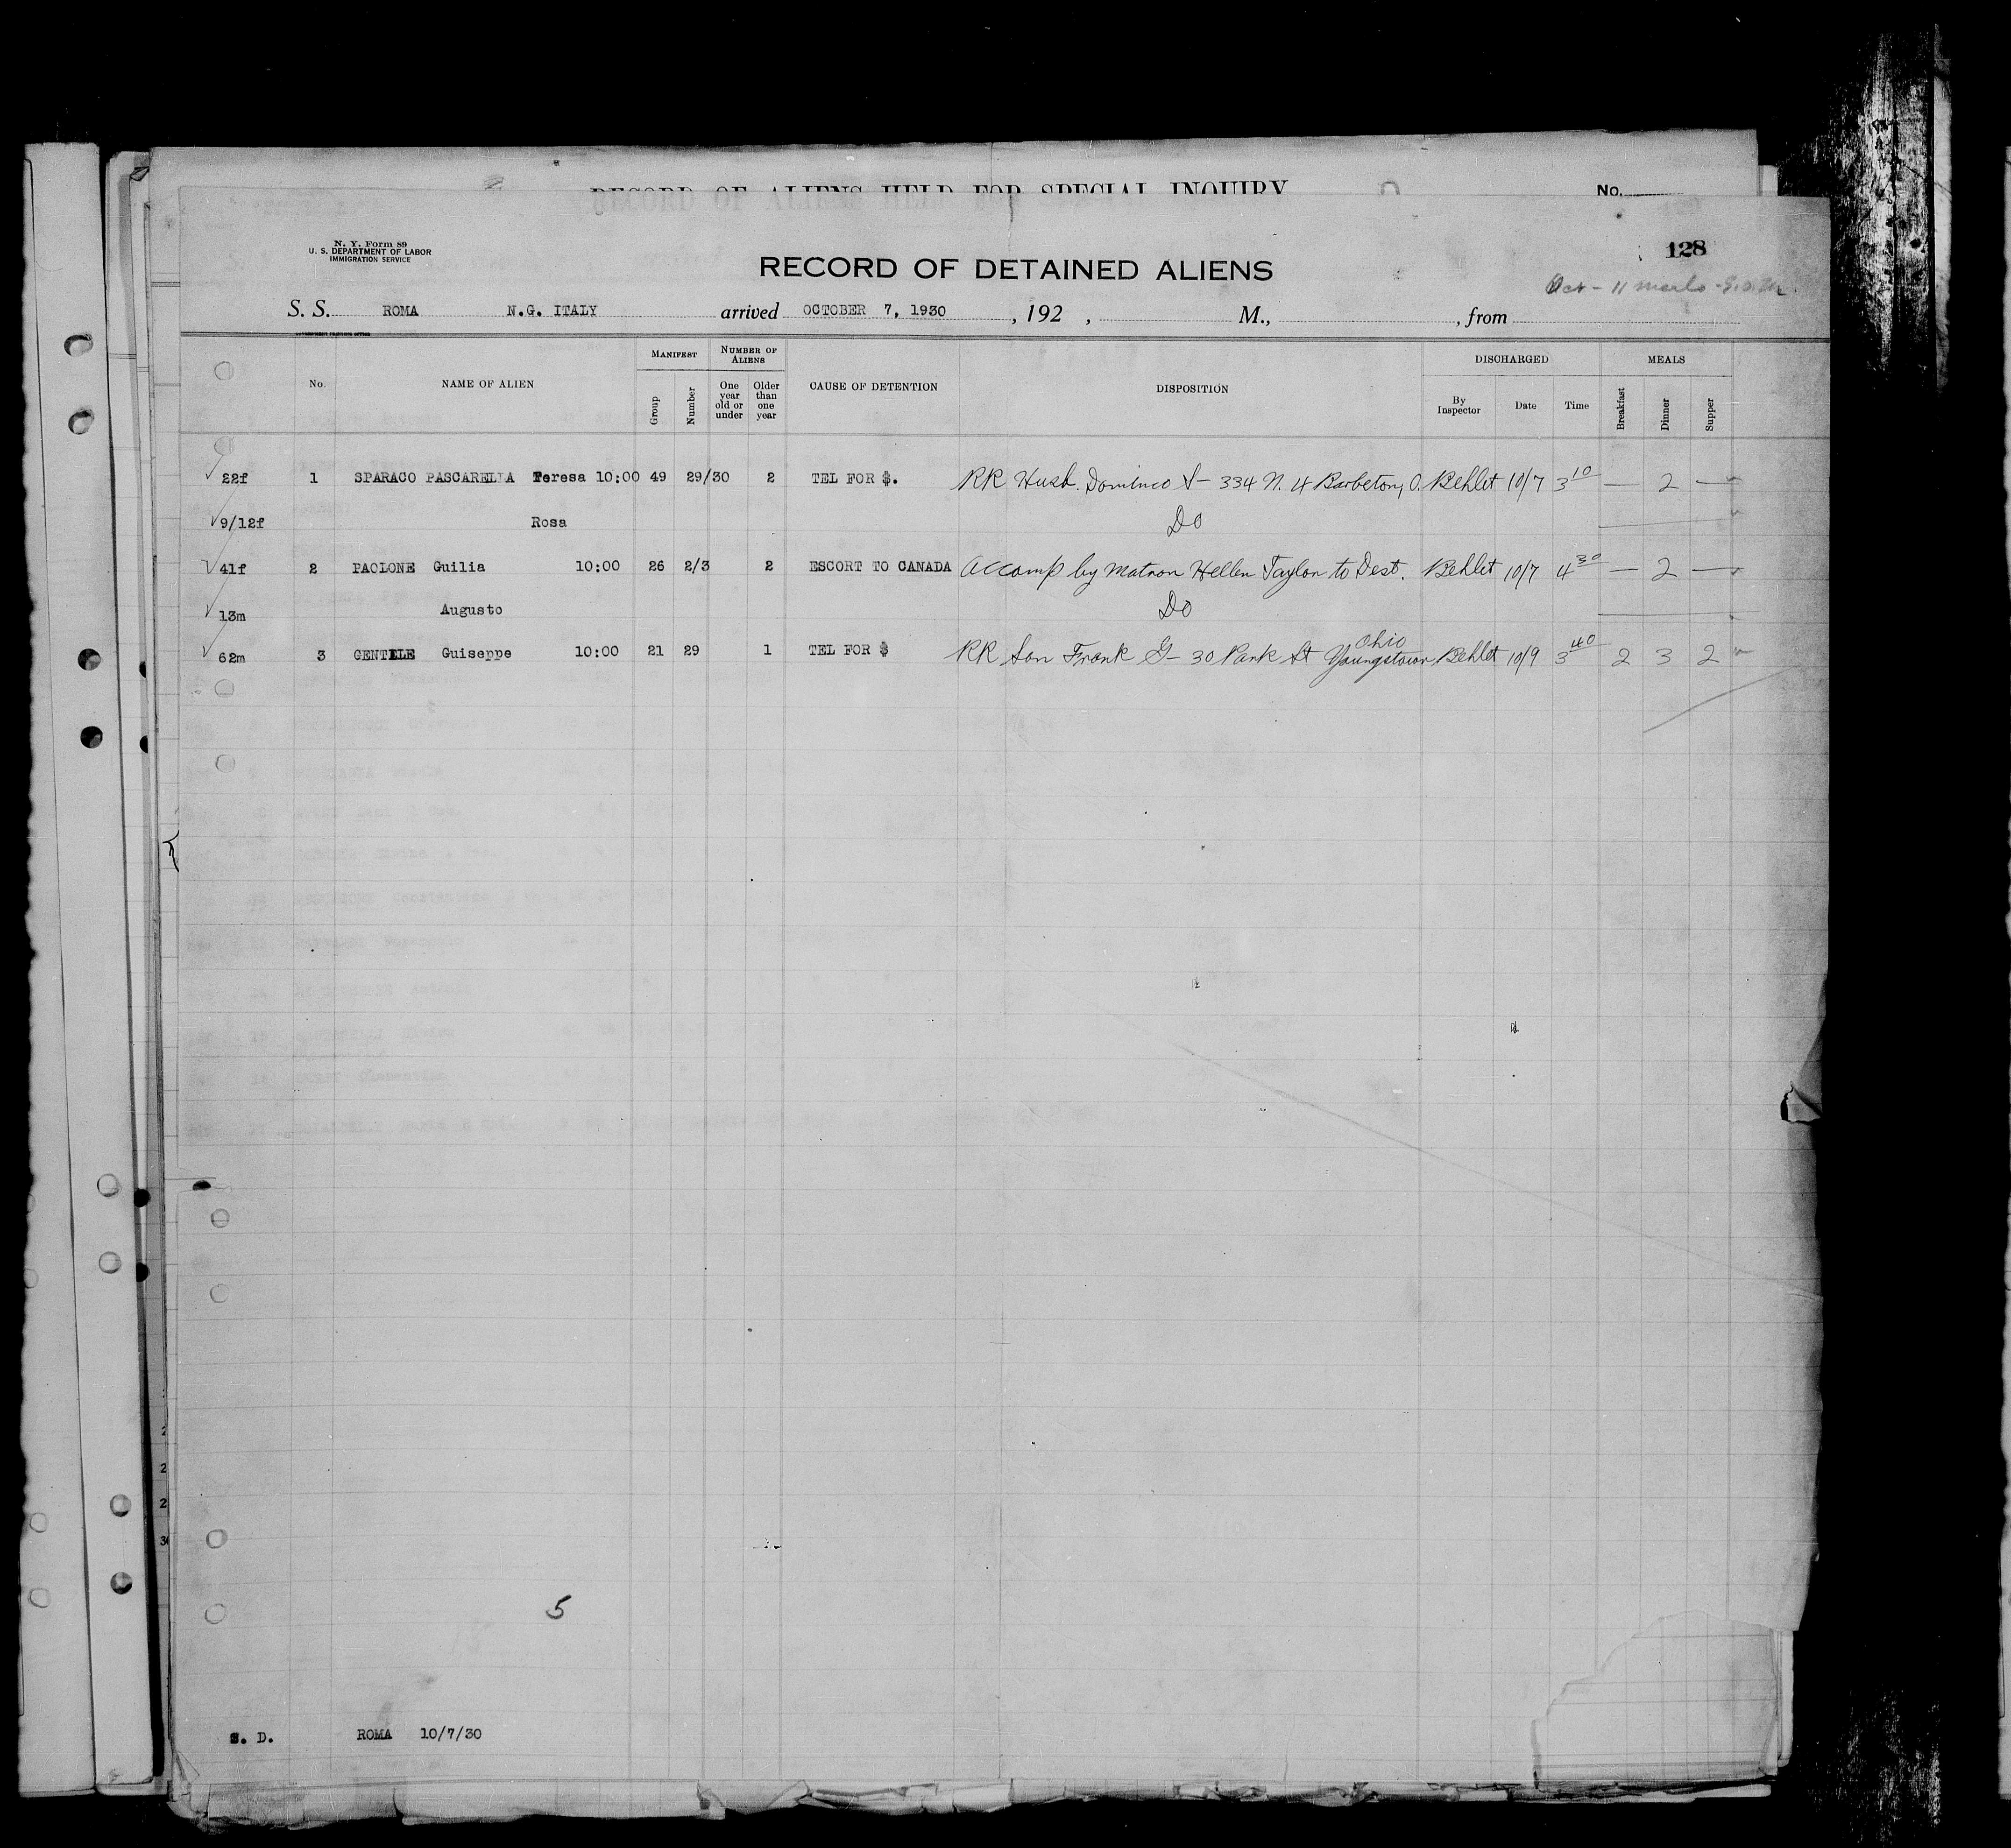 RECORD OF ALIENS HELD FOR SPECIAL INQUIRY
No.
N. Y. Form 89
U. S. DEPARTMENT OF LABOR
IMMIGRATION SERVICE
128
RECORD OF DETAINED ALIENS
Oct - 11 meals -
S. S. ROMA N.G. ITALY arrived OCTOBER 7, 1930 , 192 , M., , from
MANIFEST NUMBER OF ALIENS DISCHARGED MEALS
No. NAME OF ALIEN Group Number One year old or under Older than one year CAUSE OF DETENTION DISPOSITION By Inspector Date Time Breakfast Dinner Supper
22f 1 SPARACO PASCARELLA Teresa 10:00 49 29/30 2 TEL FOR $. RR Husb. Dominco S- 334 N. 4 Barbeton, O. Behlet 10/7 3 10 — 2 —
9/12f Rosa Do
41f 2 PAOLONE Guilia 10:00 26 2/3 2 ESCORT TO CANADA Accomp by Matron Hellen Taylor to Dest. Behlet 10/7 4 30 — 2 —
13m Augusto Do
62m 3 GENTILE Guiseppe 10:00 21 29 1 TEL FOR $ RR Son Frank G- 30 Park St Youngstown Ohio Behlet 10/9 3 40 2 3 2
2
2
2
30
5
S. D. ROMA 10/7/30